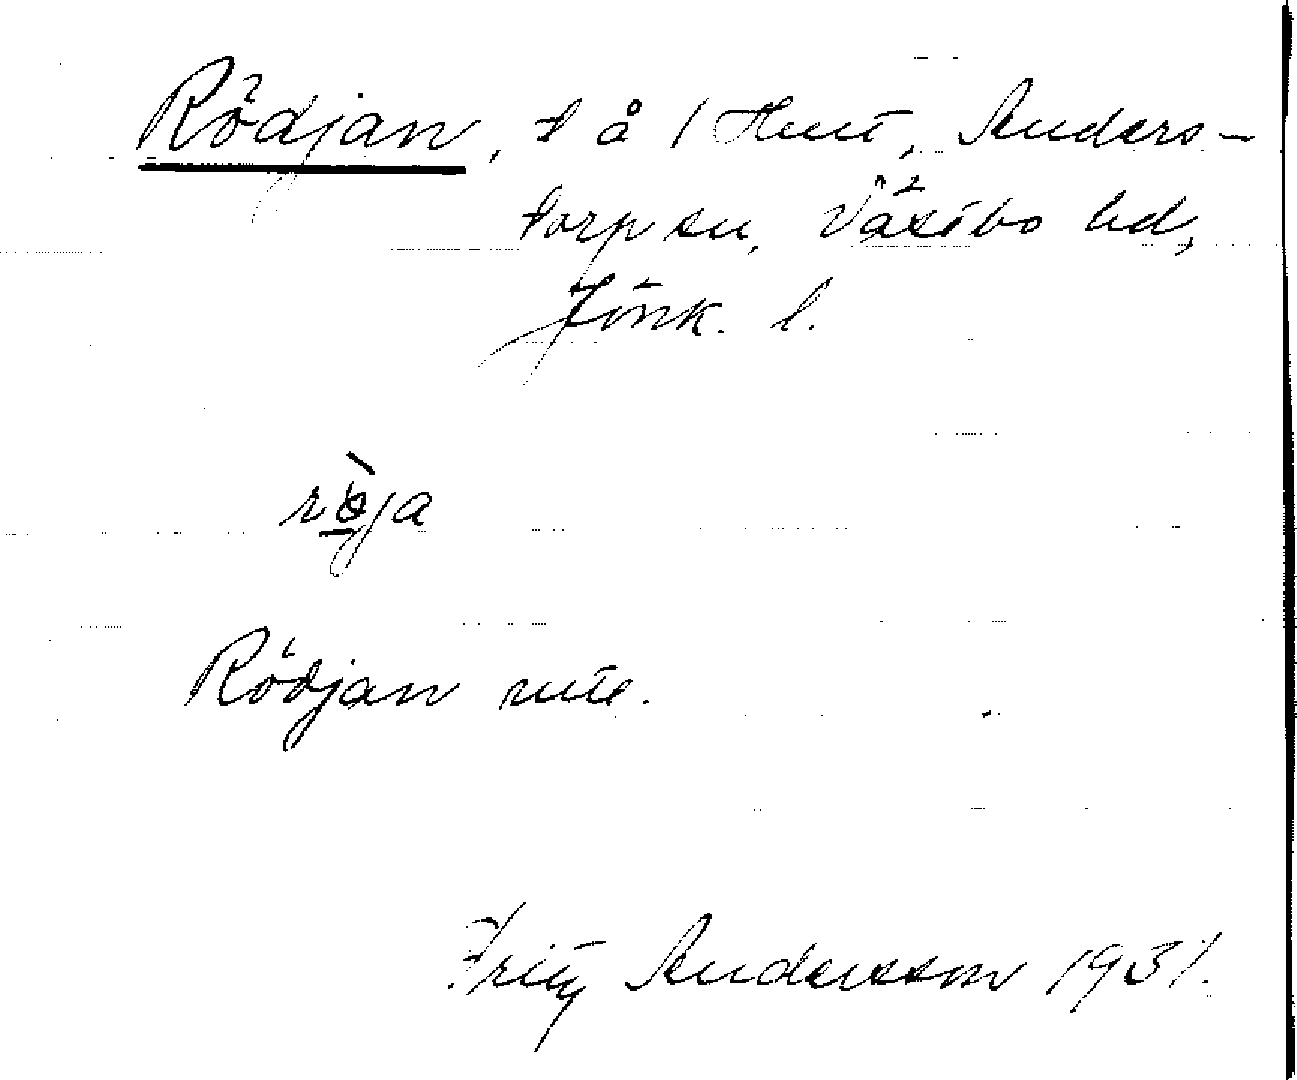 Rödjan, t å 1 Hunt, Anders-
torp sn, Västbo hd,
Jönk. l.
röja
Rödjan
Fritz Andersson 1931.